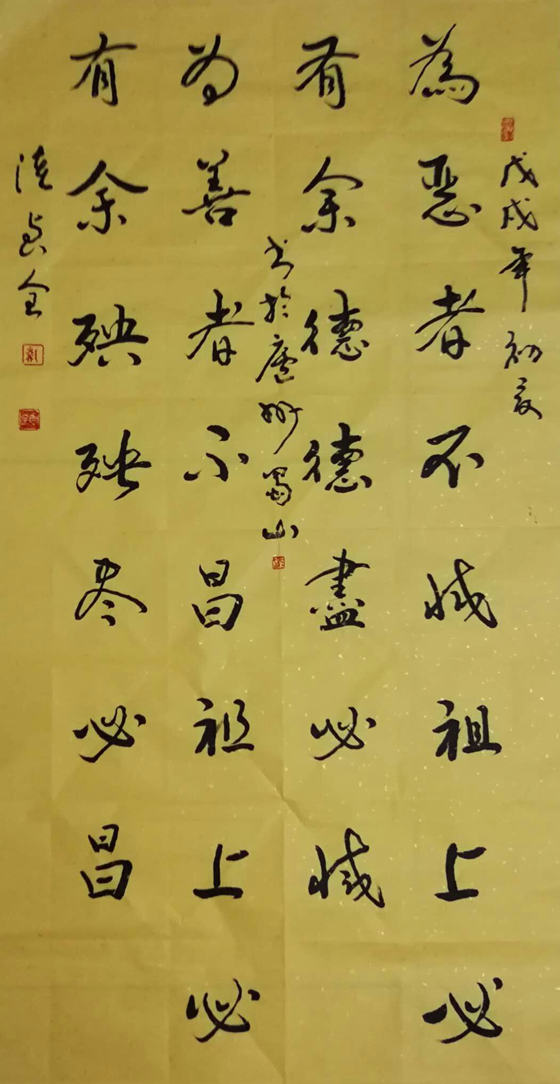 戊戌年初夏
為恶者不滅祖上必
有余德德盡必滅
书於廬州蜀山
为善者不昌祖上必
有余殃殃尽必昌